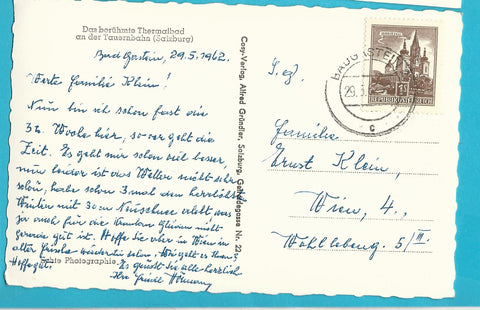 Das berühmte Thermalbad
an der Tauernbahn (Salzburg)
Bad Gastein, 29.5.1962.
Werte Familie Klein!
Nun bin ich schon fast die
3te Woche hier, so geht die
Zeit. Es geht mir schon viel besser,
nur leider ist das Wetter nicht sehr
schön, habe schon 3 mal den herrlichsten
Winter mit 30 cm Neuschnee erlebt, was
ja auch für die kranken nicht
gerade gut ist. Hoffe Sie aber in Wien in
alter Frische wieder zu sehen. Wie geht es Ihnen?
Hoffe gut.
Es grüßt Sie alle herzlich
Ihre
Echte Photographie
Cosy-Verlag, Alfred Gründler, Salzburg, Gasse Nr. 22
BADGASTEIN
29.5.
c
REPUBLIK ÖSTERREICH
Familie
Ernst Klein,
Wien, 4.,
5/II.